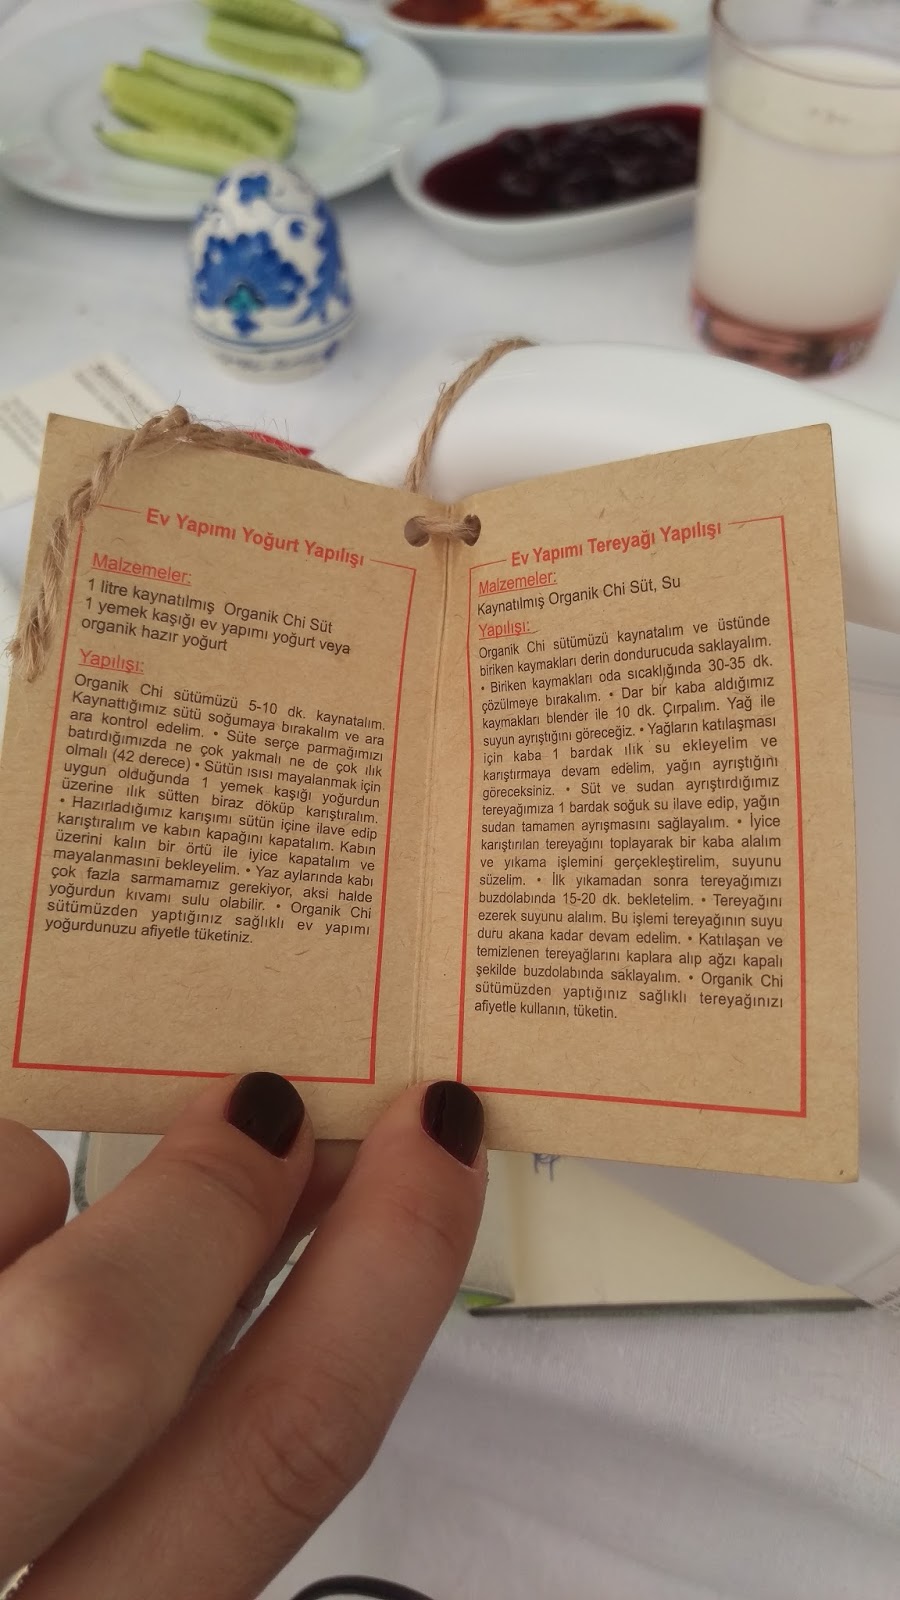 Ev Yapımı Yoğurt Yapılışı
Malzemeler:
1 litre kaynatılmış Organik Chi Süt
1 yemek kaşığı ev yapımı yoğurt veya
organik hazır yoğurt
Yapılışı:
Organik Chi sütümüzü 5-10 dk. kaynatalım.
Kaynattığımız sütü soğumaya bırakalım ve ara
ara kontrol edelim. • Süte serçe parmağımızı
batırdığımızda ne çok yakmalı ne de çok ılık
olmalı (42 derece) • Sütün ısısı mayalanmak için
uygun olduğunda 1 yemek kaşığı yoğurdun
üzerine ılık sütten biraz döküp karıştıralım.
• Hazırladığımız karışımı sütün içine ilave edip
karıştıralım ve kabın kapağını kapatalım. Kabın
üzerini kalın bir örtü ile iyice kapatalım ve
mayalanmasını bekleyelim. • Yaz aylarında kabı
çok fazla sarmamamız gerekiyor, aksi halde
yoğurdun kıvamı sulu olabilir. • Organik Chi
sütümüzden yaptığınız sağlıklı ev yapımı
yoğurdunuzu afiyetle tüketiniz.
Ev Yapımı Tereyağı Yapılışı
Malzemeler:
Kaynatılmış Organik Chi Süt, Su
Yapılışı:
Organik Chi sütümüzü kaynatalım ve üstünde
biriken kaymakları derin dondurucuda saklayalım.
• Biriken kaymakları oda sıcaklığında 30-35 dk.
çözülmeye bırakalım. • Dar bir kaba aldığımız
kaymakları blender ile 10 dk. Çırpalım. Yağ ile
suyun ayrıştığını göreceğiz. • Yağların katılaşması
için kaba 1 bardak ılık su ekleyelim ve
karıştırmaya devam edelim, yağın ayrıştığını
göreceksiniz. • Süt ve sudan ayrıştırdığımız
tereyağımıza 1 bardak soğuk su ilave edip, yağın
sudan tamamen ayrışmasını sağlayalım. • İyice
karıştırılan tereyağını toplayarak bir kaba alalım
ve yıkama işlemini gerçekleştirelim, suyunu
süzelim. • İlk yıkamadan sonra tereyağımızı
buzdolabında 15-20 dk. bekletelim. • Tereyağını
ezerek suyunu alalım. Bu işlemi tereyağının suyu
duru akana kadar devam edelim. • Katılaşan ve
temizlenen tereyağlarını kaplara alıp ağzı kapalı
şekilde buzdolabında saklayalım. • Organik Chi
sütümüzden yaptığınız sağlıklı tereyağınızı
afiyetle kullanın, tüketin.